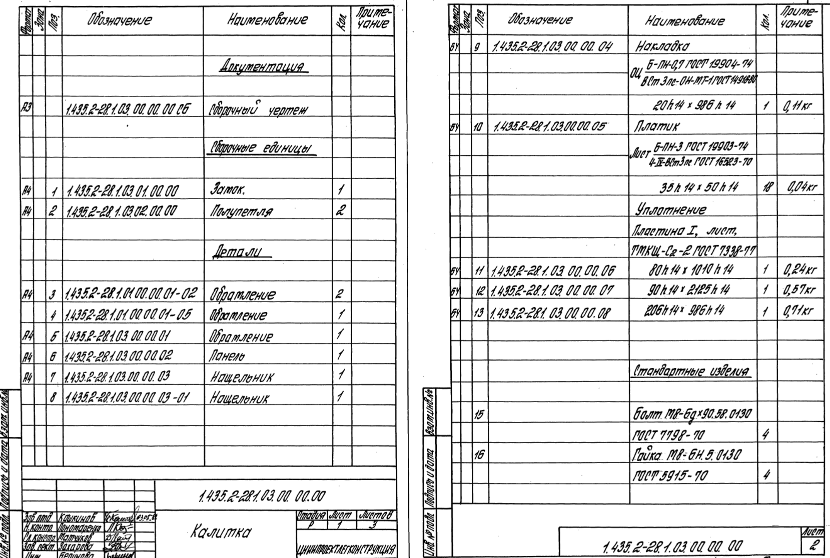 Формат Зона Поз. Обозначение Наименование Кол. Приме-
чание
Документация
А3 1.435.2-28.1.03.00.00.00 СБ Сборочный чертеж
Сборочные единицы
А4 1 1.435.2-28.1.03.01.00.00 Замок. 1
А4 2 1.435.2-28.1.03.02.00.00 Полупетля 2
Детали
А4 3 1.435.2-28.1.01.00.00.01-02 Обрамление 2
4 1.435.2-28.1.01.00.00.01-05 Обрамление 1
А4 5 1.435.2-28.1.03.00.00.01 Обрамление 1
А4 6 1.435.2-28.1.03.00.00.02 Панель 1
А4 7 1.435.2-28.1.03.00.00.03 Нащельник 1
8 1.435.2-28.1.03.00.00.03-01 Нащельник 1
1.435.2-28.1.03.00.00.00
Калитка
Стадия Лист Листов
Р 1 3
ЦНИИПРОЕКТЛЕГКОНСТРУКЦИЯ
Формат Зона Поз. Обозначение Наименование Кол. Приме-
чание
БЧ 9 1.435.2-28.1.03.00.00.04 Накладка
ОЦ Б-ПН-0,7 ГОСТ 19904-74
20h14 × 986 h14 1 0,11кг
БЧ 10 1.435.2-28.1.03.00.00.05 Платик
Лист Б-ПН-3 ГОСТ 19903-74
4-IV-ВСт3пс ГОСТ 16523-70
35h14 × 50h14 18 0,04кг
Уплотнение
Пластина I, лист,
ТМКЩ-С2-2 ГОСТ 7338-77
БЧ 11 1.435.2-28.1.03.00.00.06 80h14 × 1010h14 1 0,24кг
БЧ 12 1.435.2-28.1.03.00.00.07 90h14 × 2125h14 1 0,57кг
БЧ 13 1.435.2-28.1.03.00.00.08 206h14 × 986h14 1 0,71кг
Стандартные изделия
15 Болт М8-6g×90.58.0130
ГОСТ 7798-70 4
16 Гайка М8-6Н.5.0130
ГОСТ 5915-70 4
1.435.2-28.1.03.00.00.00
Лист
2